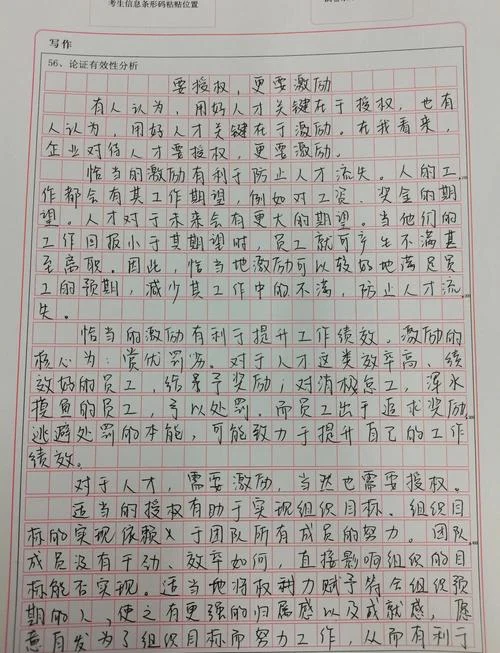 考生信息条形码粘贴位置
写作
56、论证有效性分析
要授权,更要激励
有人认为,用好人才关键在于授权,也有
人认为,用好人才关键在于激励。在我看来,
企业对待人才要授权,更要激励。
恰当的激励有利于防止人才流失。人的工
作都会有其工作期望,例如对工资、奖金的期
望。人才对于未来会有更大的期望。当他们的
工作回报小于其期望时,员工就可产生不满甚
至离职。因此,恰当地激励可以较好地满足员
工的预期,减少其工作中的不满,防止人才流
失。
恰当的激励有利于提升工作绩效。激励的
核心为:赏优罚劣。对于人才这类效率高、绩
效好的员工,给予奖励;对消极怠工,浑水
摸鱼的员工,予以处罚。而员工出于追求奖励
逃避处罚的本能,可能致力于提升自己的工作
绩效。
对于人才,需要激励,当然也需要授权。
适当的授权有助于实现组织目标。组织目
标的实现依赖于团队所有成员的努力。团队
成员没有干劲、效率如何,直接影响组织的目
标能否实现。适当地将权利力赋予符合组织预
期的人,使之有更强的归属感以及成就感,愿
意自发为了组织目标而努力工作,从而有利于